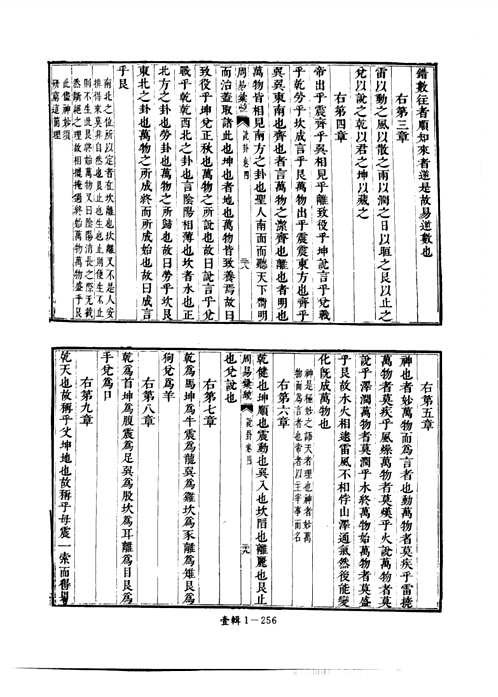 錯數往者順知來者逆是故易逆數也
右第三章
雷以動之風以散之雨以潤之日以晅之艮以止之
兌以說之乾以君之坤以藏之
右第四章
帝出乎震齊乎巽相見乎離致役乎坤說言乎兌戰
乎乾勞乎坎成言乎艮萬物出乎震震東方也齊乎
巽巽東南也齊也者言萬物之潔齊也離也者明也
萬物皆相見南方之卦也聖人南面而聽天下嚮明
周易彙纂
說卦卷四
三八
而治蓋取諸此也坤也者地也萬物皆致養焉故曰
致役乎坤兌正秋也萬物之所說也故曰說言乎兌
戰乎乾乾西北之卦也言陰陽相薄也坎者水也正
北方之卦也勞卦也萬物之所歸也故曰勞乎坎艮
東北之卦也萬物之所成終而所成始也故曰成言
乎艮
南北之位所以定者在坎離也坎離又不是人安
排得來莫非自然也艮止也生也止則便生不止
則不生此艮終始萬物又曰陰陽消長之際无截
然斷絕之理故相攙掩過終始萬物萬物盛乎艮
此儘神妙須
研窮這箇理
右第五章
神也者妙萬物而為言者也動萬物者莫疾乎雷撓
萬物者莫疾乎風燥萬物者莫熯乎火說萬物者莫
說乎澤潤萬物者莫潤乎水終萬物始萬物者莫盛
乎艮故水火相逮雷風不相悖山澤通氣然後能變
化旣成萬物也
神是極妙之語天者理也神者妙萬
物而為言者也帝者以主宰事而名
右第六章
乾健也坤順也震動也巽入也坎陷也離麗也艮止
周易彙纂
說卦卷四
三九
也兌說也
右第七章
乾為馬坤為牛震為龍巽為雞坎為豕離為雉艮為
狗兌為羊
右第八章
乾為首坤為腹震為足巽為股坎為耳離為目艮為
手兌為口
右第九章
乾天也故稱乎父坤地也故稱乎母震一索而得男
壹輯1－256